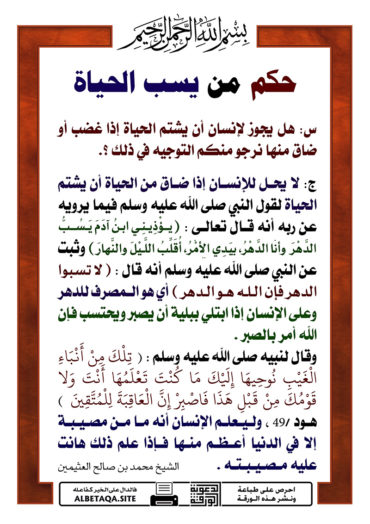 بسم الله الرحمن الرحيم
حكم من يسب الحياة
س: هل يجوز لإنسان أن يشتم الحياة إذا غضب أو
ضاق منها نرجو منكم التوجيه في ذلك ؟.
ج: لا يحل للإنسان إذا ضاق من الحياة أن يشتم
الحياة لقول النبي صلى الله عليه وسلم فيما يرويه
عن ربه أنه قال تعالى : ( يُؤذِينِي ابنُ آدَمَ يَسُبُّ
الدَّهْرَ وأنا الدَّهْرُ، بيَدِي الأمْرُ، أُقَلِّبُ اللَّيْلَ والنَّهارَ) وثبت
عن النبي صلى الله عليه وسلم أنه قال : ( لا تسبوا
الدهر فإن الله هو الدهر ) أي هو المصرف للدهر
وعلى الإنسان إذا ابتلي ببلية أن يصبر ويحتسب فإن
الله أمر بالصبر .
وقال لنبيه صلى الله عليه وسلم : ( تِلْكَ مِنْ أَنْبَاءِ
الْغَيْبِ نُوحِيهَا إِلَيْكَ مَا كُنْتَ تَعْلَمُهَا أَنْتَ وَلَا
قَوْمُكَ مِنْ قَبْلِ هَذَا فَاصْبِرْ إِنَّ الْعَاقِبَةَ لِلْمُتَّقِينَ )
هود /49 ، وليعلم الإنسان أنه ما من مصيبة
إلا في الدنيا أعظم منها فإذا علم ذلك هانت
عليه مصيبته . الشيخ محمد بن صالح العثيمين
احرص على طباعة
ونشر هذه الورقة
الورقة الدعوية
فالدال على الخير كفاعله
ALBETAQA.SITE